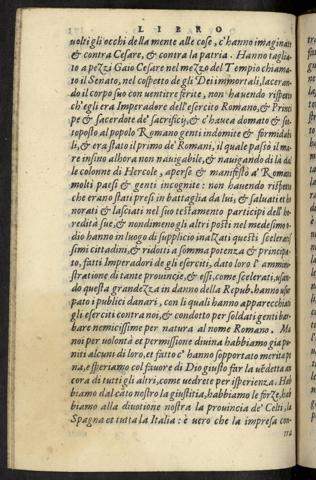 LIBRO
uolti gli occhi della mente alle cose, c'hanno imaginato
& contra Cesare, & contra la patria. Hanno taglia
to a pezzi Gaio Cesare nel mezzo del Tempio chiama-
to il Senato, nel cospetto de gli Dei immortali, laceran-
do il corpo suo con uentitre ferite, non hauendo rispetto
ch'egli era Imperadore dell'esercito Romano, & Princi
pe & sacerdote de' sacrificij, & c'hauea domato & sot
toposto al popolo Romano genti indomite & formidabi
li, & era stato il primo de' Romani, il quale passò il ma
re insino alhora non nauigabile, & nauigando di là dal
le colonne di Hercole, aperse & manifestò a' Romani
molti paesi & genti incognite: non hauendo rispetto
che erano stati presi in battaglia da lui, & saluati et ho
norati & lasciati nel suo testamento participi dell'he
redità sue, & nondimeno gli altri posti nel medesimo o-
dio hanno in luogo di supplicio inalzati questi scelerati
simi cittadini, & ridotti a somma potenza & principa-
to, fatti Imperadori de gli eserciti, dato loro l'ammini-
stratione di tante prouincie, & essi, come scelerati, usan
do questa grandezza in danno della Repub. hanno usur
pato i publici danari, con li quali hanno apparecchiato
gli eserciti contra noi, & condotto per soldati genti bar-
bare nemicissime per natura al nome Romano. Ma
noi per uolontà et permissione diuina habbiamo gia pu-
niti alcuni di loro, et fatto c'hanno sopportato merite pe
na, e speriamo col fauore di Dio giusto far la uēdetta an
cora di tutti gli altri, come uedrete per isperienza. Hab
biamo dal cāto nostro la giustitia, habbiamo le forze, hab
biamo alla diuotione nostra la prouincia de' Celti, la
Spagna et tutta la Italia: è uero che la impresa con-
tra